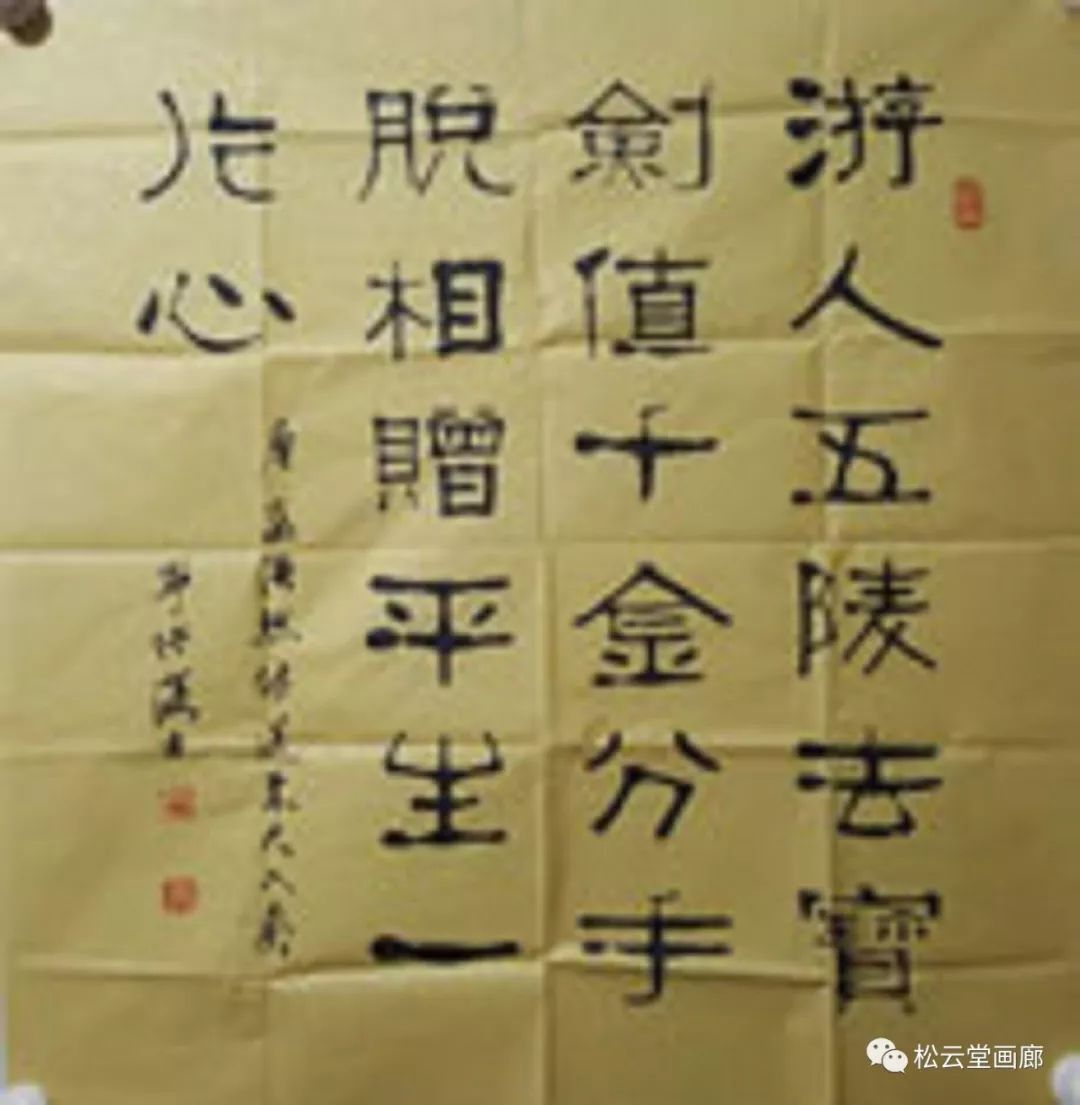 游人五陵去寶
劍值千金分手
脫相贈平生一
片心
唐孟浩然诗送朱大入秦
松云堂画廊